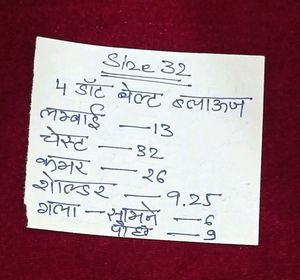 Size 32
4 डॉट बेल्ट ब्लाऊज
लम्बाई — 13
चेस्ट — 32
कमर — 26
शोल्डर — 9.25
गला — सामने — 6
पीछे — 9